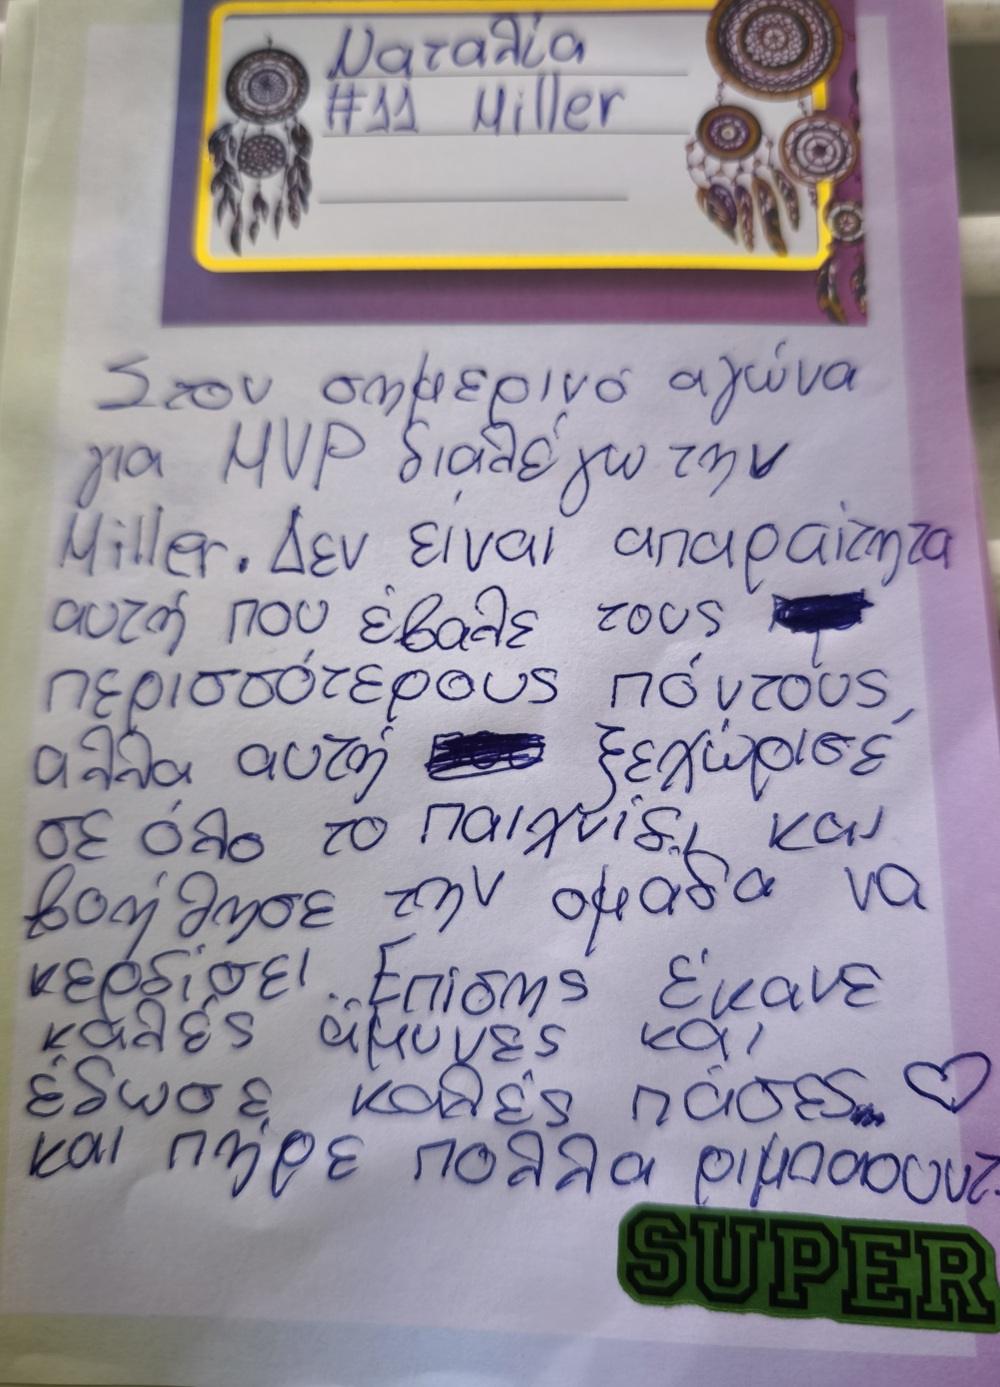 Ναταλία
#11 Miller
Στον σημερινό αγώνα
για MVP διαλέγω την
Miller. Δεν είναι απαραίτητα
αυτή που έβαλε τους
περισσότερους πόντους,
αλλα αυτή ξεχώρισε
σε όλο το παιχνίδι και
βοήθησε την ομάδα να
κερδίσει. Επίσης έκανε
καλές άμυνες και
έδωσε καλές πάσες
και πήρε πολλα ριμπάουντ.
SUPER